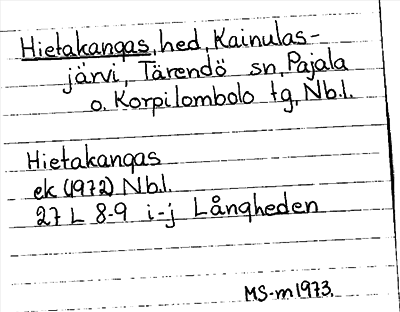 Hietakangas, hed, Kainulas-
järvi, Tärendö sn, Pajala
o. Korpilombolo tg, Nb.l.
Hietakangas
ek (1972) Nb.l.
27 L 8-9 i-j Långheden
MS-m 1973.